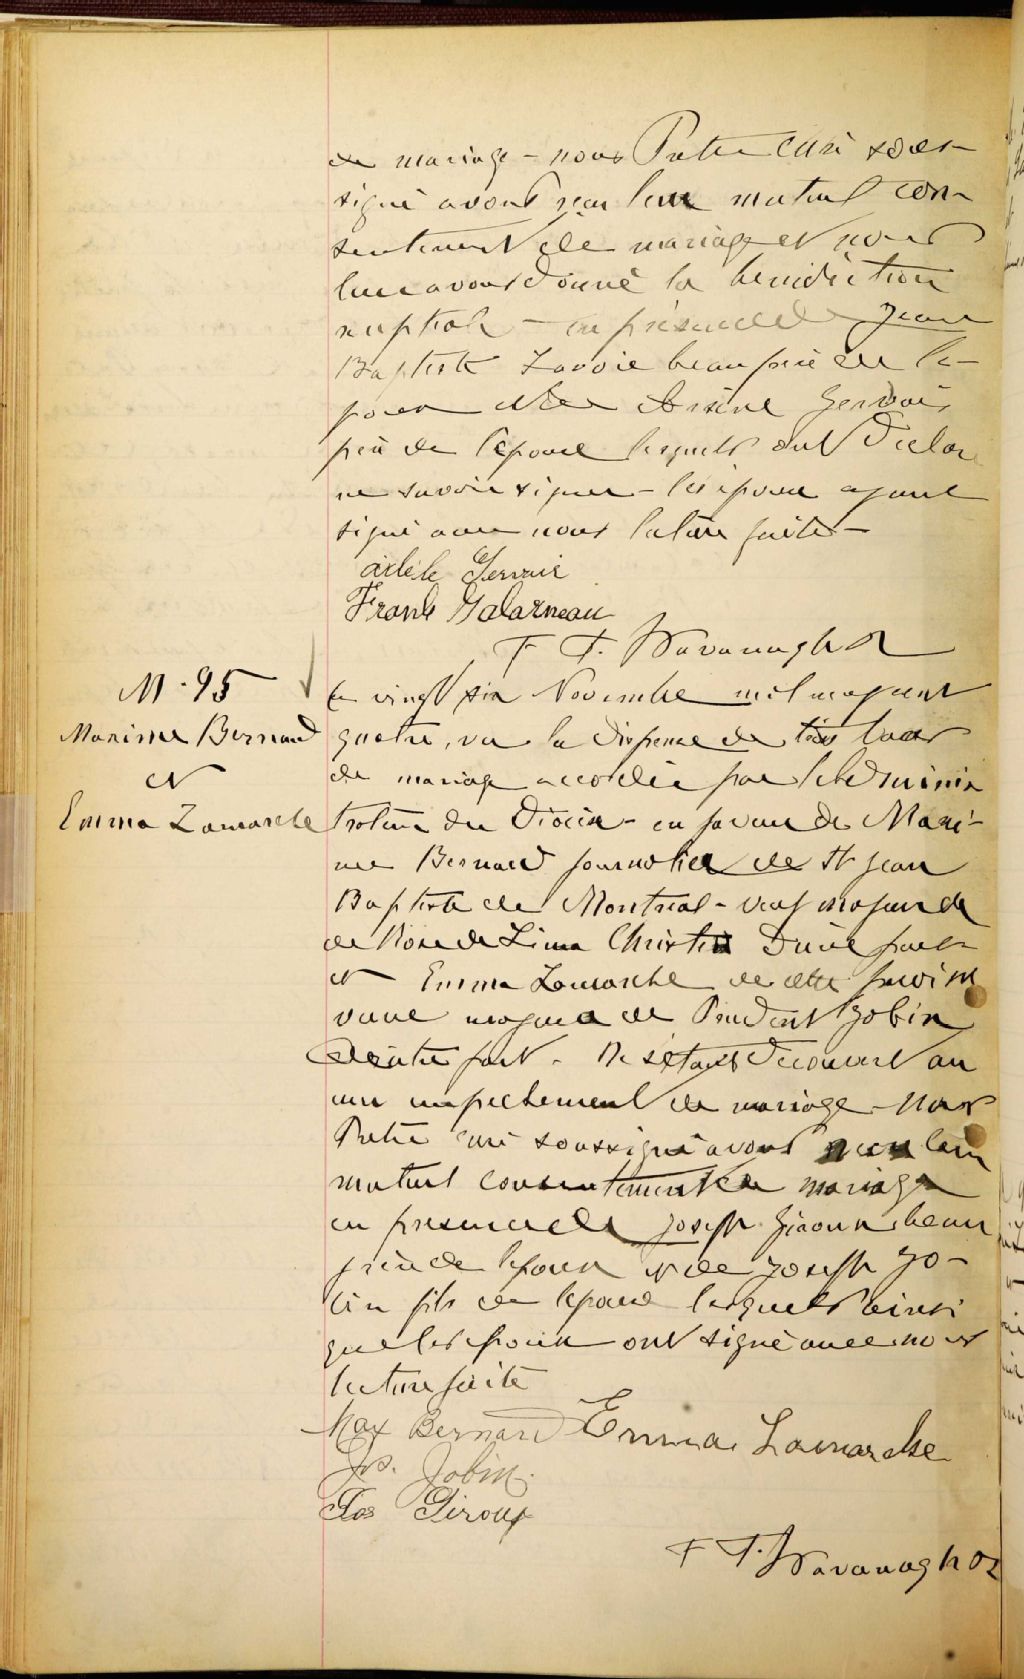 de mariage - nous Prêtre Curé sous-
signé avons reçu leur mutuel con-
sentement de mariage et nous
leur avons donné la bénédiction
nuptiale - en présence de Jean
Baptiste Lavoie beau père de l'é-
poux et de Arsène Gervais
père de l'épouse lesquels ont déclaré
ne savoir signer - les époux ayant
signé avec nous lecture faite -
Adèle Gervais
Frank Galarneau
F. T. Kavanagh
M - 95
Maxime Bernard
et
Emma Lamarche
Le vingt six Novembre mil neuf cent
quatre, vu la dispense de trois bans
de mariage accordée par l'adminis
trateur du Diocèse - en faveur de Maxi-
me Bernard journalier de St Jean
Baptiste de Montréal - veuf majeur de
de Rose de Lima Christin D'une part
et Emma Lamarche de cette paroisse
veuve majeure de Prudent Jobin
D'autre part - Ne s'étant découvert au
cun empêchement de mariage - Nous
Prêtre curé soussigné avons reçu leur
mutuel consentement de mariage
en présence de Joseph Giroux beau
frère de l'époux et de Joseph Jo-
bin fils de l'épouse lesquels ainsi
que les époux ont signé avec nous
lecture faite
Max Bernard Emma Lamarche
Jos. Jobin.
Jos Giroux
F. T. Kavanagh